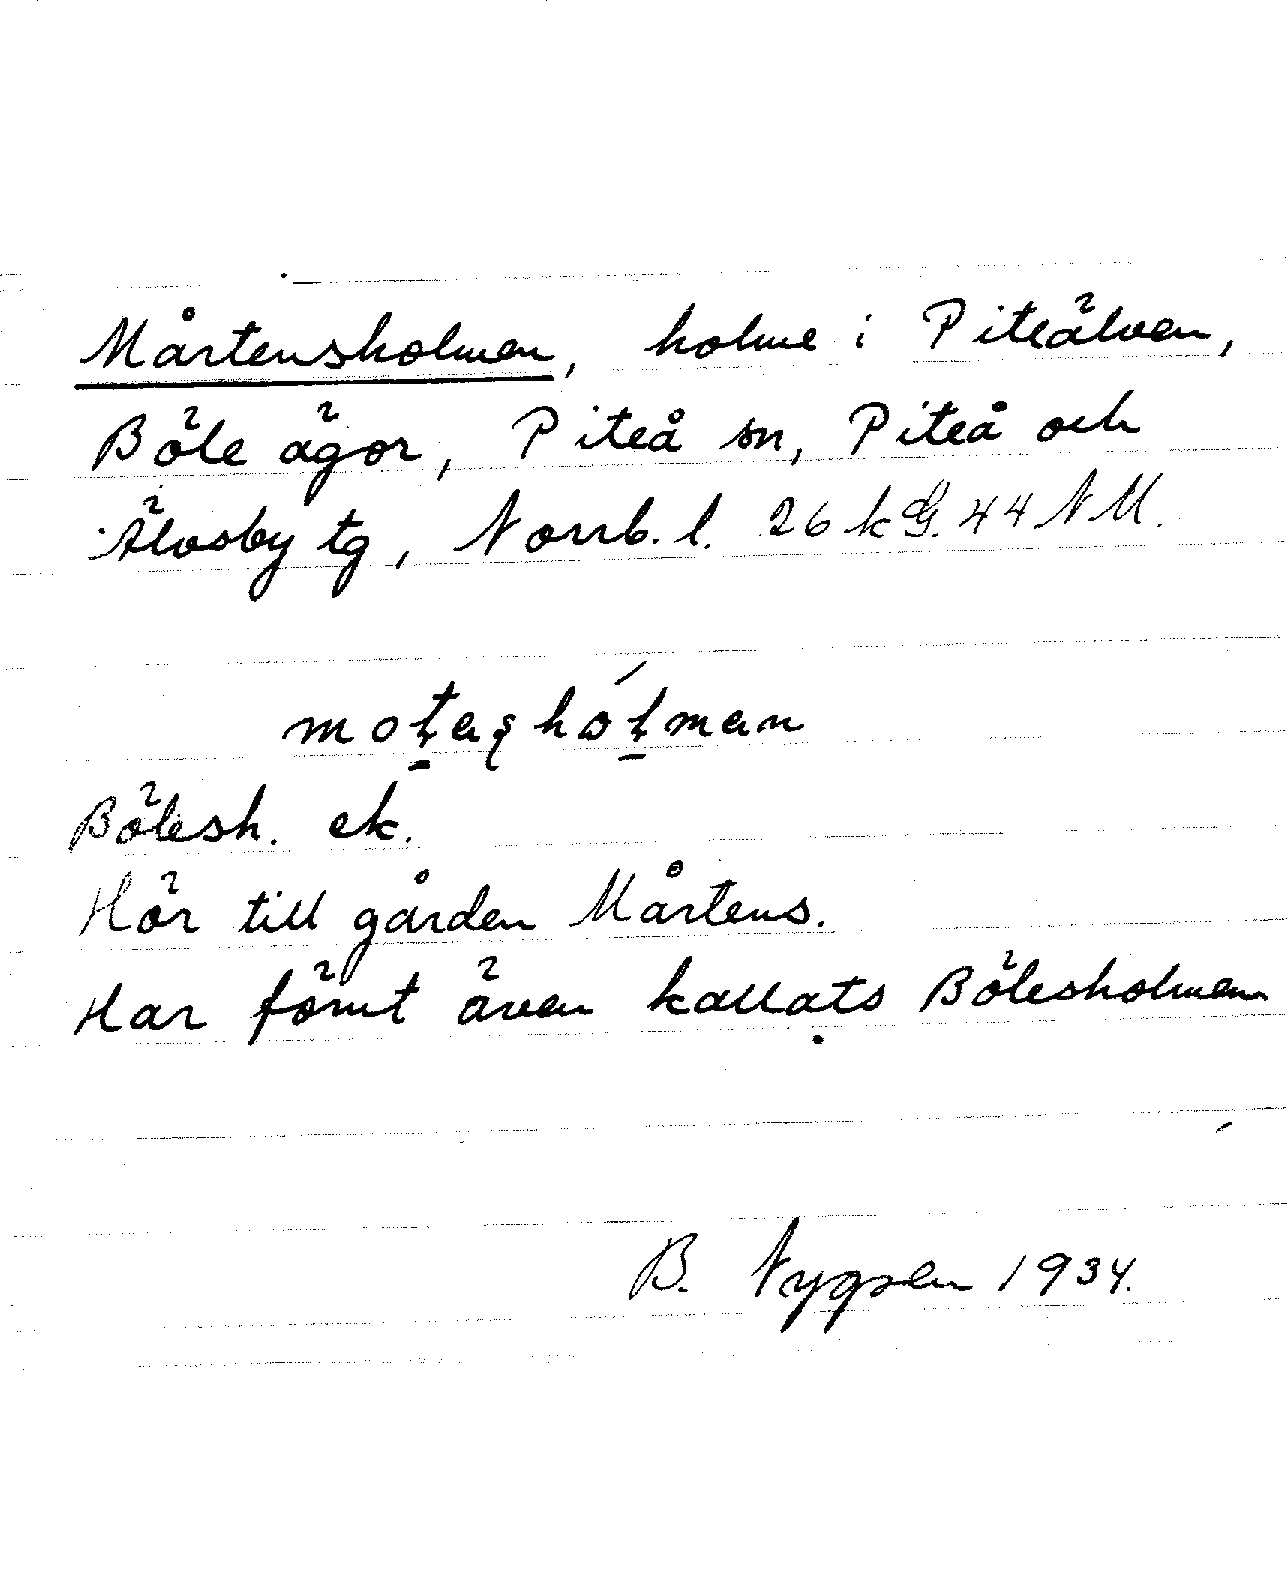 Mårtensholmen, holme i Piteälven,
Böle ägor, Piteå sn, Piteå och
Älvsby tg, Norrb. l. 26 k G. 44 NM.
Bölesh. ek.
Hör till gården Mårtens.
Har förut även kallats Bölesholmen
B. 1934.